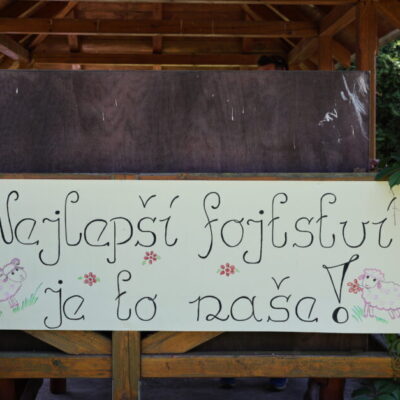 Nejlepší fojtství
je to naše!